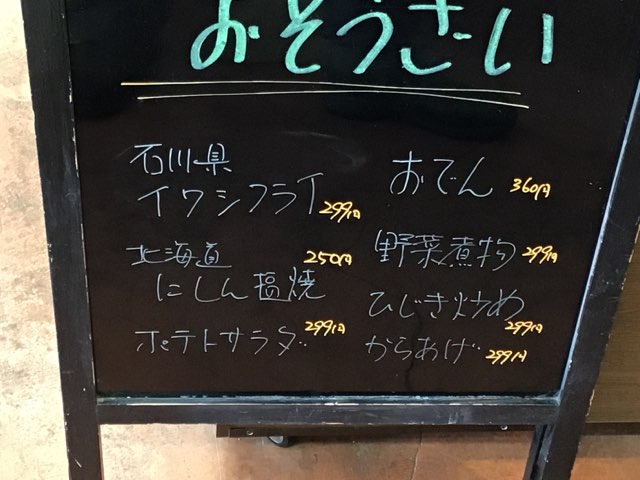 おそうざい
石川県
イワシフライ 299円
北海道 250円
にしん塩焼
ポテトサラダ 299円
おでん 360円
野菜煮物 299円
ひじき炒め
299円
からあげ 299円